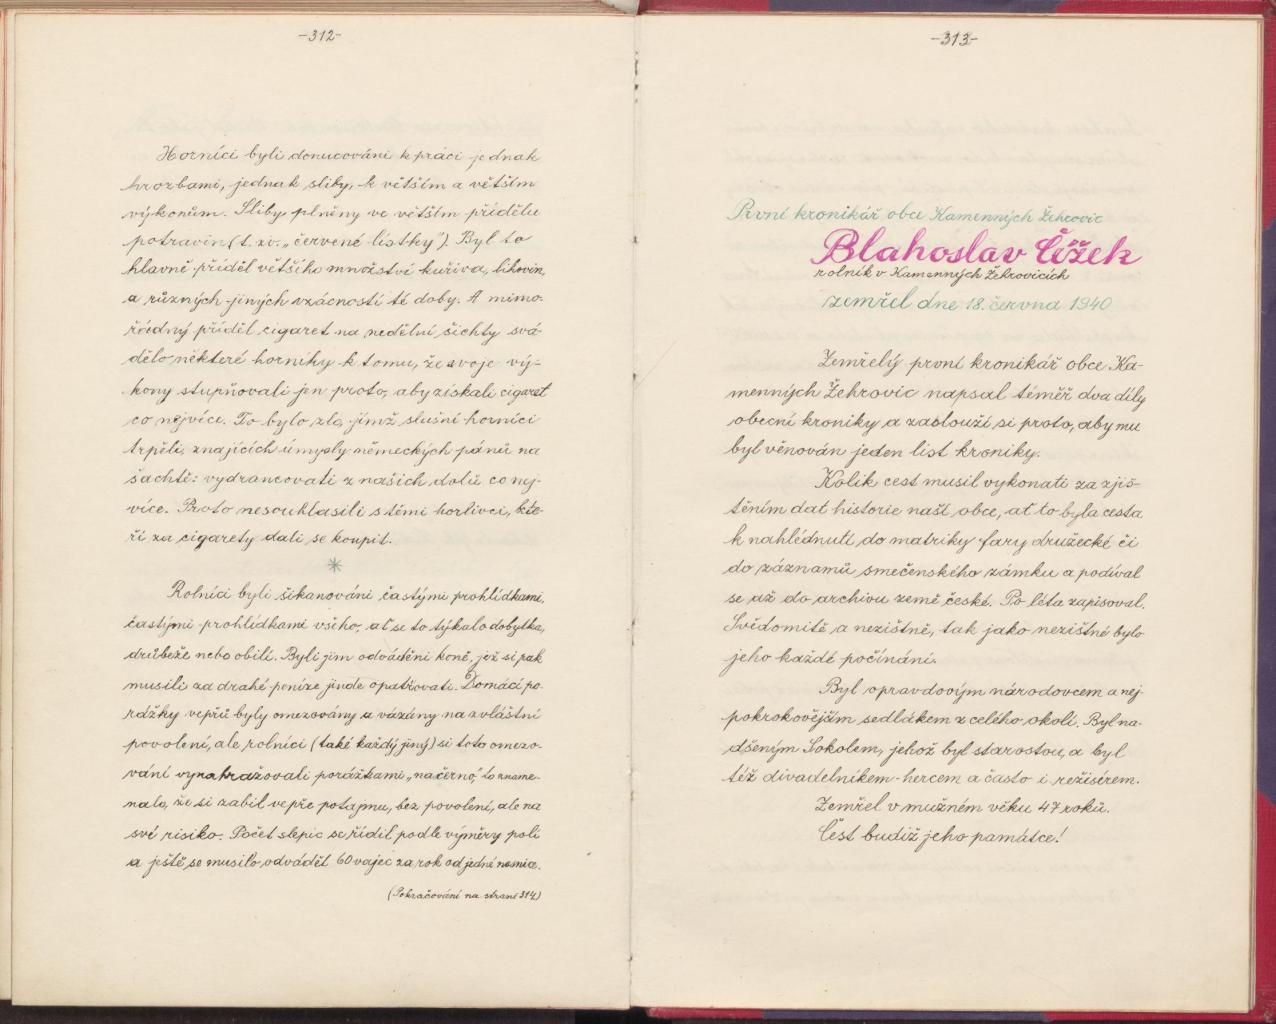 -312-
Horníci byli donucováni k práci jednak
hrozbami, jednak sliby, k větším a větším
výkonům. Sliby plněny ve větším přídělu
potravin (t. zv. „červené lístky"). Byl to
hlavně příděl většího množství kuřiva, lihovin,
a různých jiných vzácností té doby. A mimo-
řádný příděl cigaret na nedělní šichty svá-
dělo některé horníky k tomu, že svoje vý-
kony stupňovali jen proto, aby získali cigaret
co nejvíce. To bylo zlo, jímž slušní horníci
trpěli, znajících úmysly německých pánů na
šachtě: vydrancovati z našich dolů co nej-
více. Proto nesouhlasili s těmi horlivci, kte-
ří za cigarety dali se koupit.
Rolníci byli šikanováni častými prohlídkami,
častými prohlídkami všeho, ať se to týkalo dobytka,
drůbeže nebo obilí. Byli jim odváděni koně, jež si pak
musili za drahé peníze jinde opatřovati. Domácí po-
rážky vepřů byly omezovány a vázány na zvláštní
povolení, ale rolníci (také každý jiný) si toto omezo-
vání vynahražovali porážkami „na černo," to zname-
nalo, že si zabil vepře potajmu, bez povolení, ale na
své risiko. Počet slepic se řídil podle výměry polí
a ještě se musilo odvádět 60 vajec za rok od jedné nosnice.
(Pokračování na straně 314)
-313-
První kronikář obce Kamenných Žehrovic
Blahoslav Čížek
rolník v Kamenných Žehrovicích
zemřel dne 18. června 1940
Zemřelý první kronikář obce Ka-
menných Žehrovic napsal téměř dva díly
obecní kroniky a zaslouží si proto, aby mu
byl věnován jeden list kroniky.
Kolik cest musil vykonati za zjiš-
těním dat historie naší obce, ať to byla cesta
k nahlédnutí do matriky fary družecké či
do záznamů smečenského zámku a podíval
se až do archivu země české. Po léta zapisoval.
Svědomitě a nezištně, tak jako nezištné bylo
jeho každé počínání.
Byl opravdovým národovcem a nej-
pokrokovějším sedlákem z celého okolí. Byl na-
dšeným Sokolem, jehož byl starostou, a byl
též divadelníkem-hercem a často i režisérem.
Zemřel v mužném věku 47 roků.
Čest budiž jeho památce!